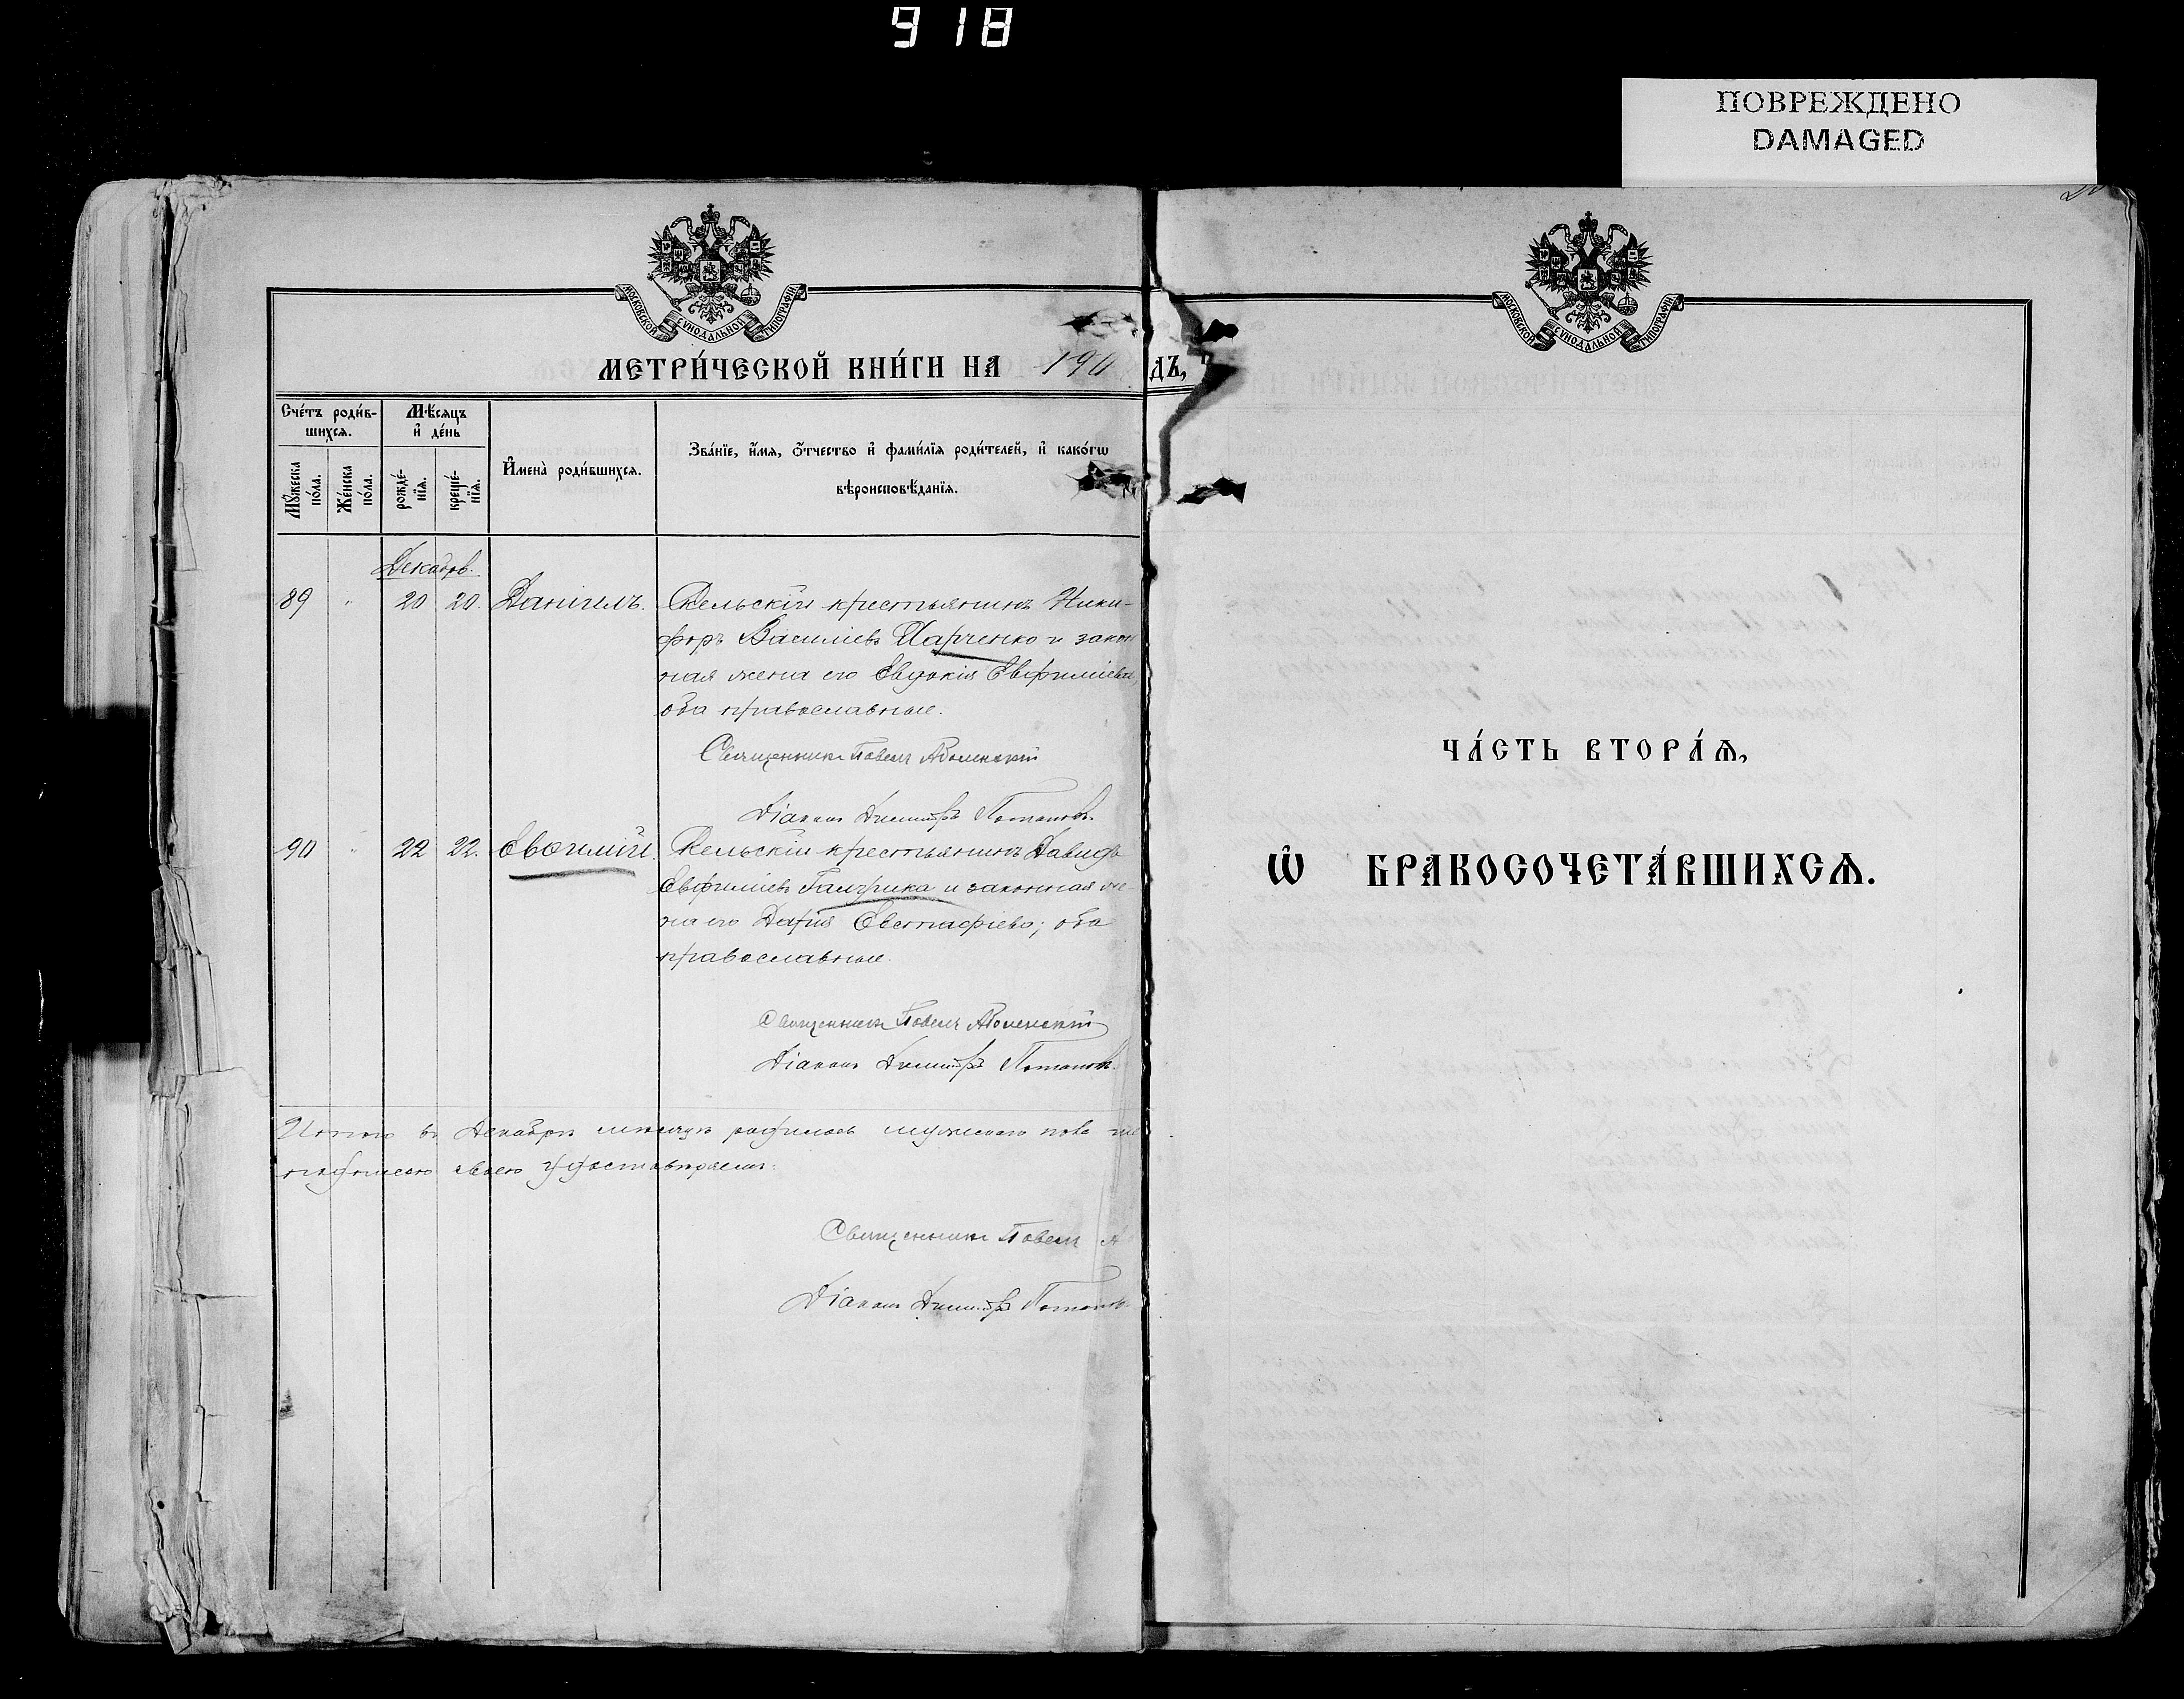 918
ПОВРЕЖДЕНО
DAMAGED
МОСКОВСКОЙ СѴНОДАЛЬНОЙ ТИПОГРАФІИ
МЕТРИ́ЧЕСКОЙ КНИ́ГИ НА 190 ДЪ,
Сче́тъ роди́в-
шихсѧ.
Мѣ́сѧцъ
и҆ де́нь
Мꙋ́жеска по́ла.
Же́нска по́ла.
рожде́-
нїѧ.
креще́-
нїѧ.
И҆мена̀ роди́вшихсѧ.
Зва́нїе, и҆́мѧ, ѻ҆́тчество и҆ фами́лїѧ роди́телей, и҆ како́гѡ
вѣроисповѣ́данїѧ.
Декабрь.
89 " 20 20. Даніилъ. Рельскій крестьянинъ Ники-
форъ Василіевъ Марченко и закон
ная жена его Евдокія Евфиміева,
оба православные.
Священникъ Павелъ
Діаконъ Димитрій Потаповъ.
90 " 22 22. Евѳимій. Рельскій крестьянинъ Давидъ
Евфиміевъ и законная же-
на его Дарія Евстафіева; оба
православные.
Священникъ Павелъ
Діаконъ Димитрій Потаповъ.
Итого въ Декабрѣ мѣсяцѣ родилось мужескаго пола
подписью своею удостовѣряемъ:
Священникъ Павелъ А
Діаконъ Димитрій Потаповъ.
МОСКОВСКОЙ СѴНОДАЛЬНОЙ ТИПОГРАФІИ
ЧА́СТЬ ВТОРА́Ѧ,
Ѡ҆ БРАКОСОЧЕТА́ВШИХСѦ.